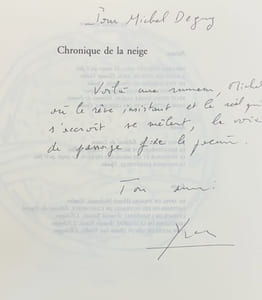 Pour Michel Deguy
Chronique de la neige
Voilà une rumeur, Michel
où le rêve insistant et le réel qui
s'accroît se mêlent, la voie
de passage du poème.
Ton ami:
Yves